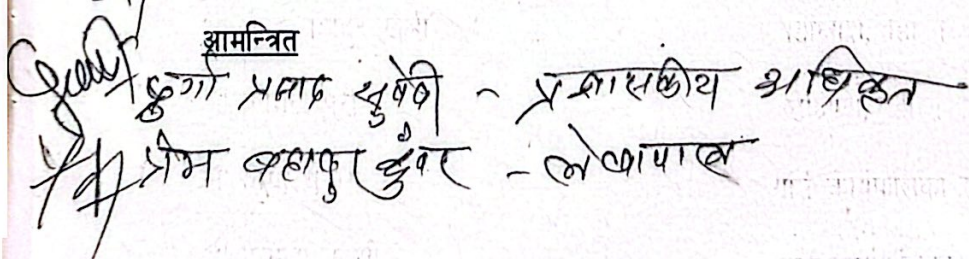 आमन्त्रित
दुर्गा प्रसाद सुवेदी - प्रशासकीय अधिकृत
प्रेम बहादुर कुँवर - लेखापाल